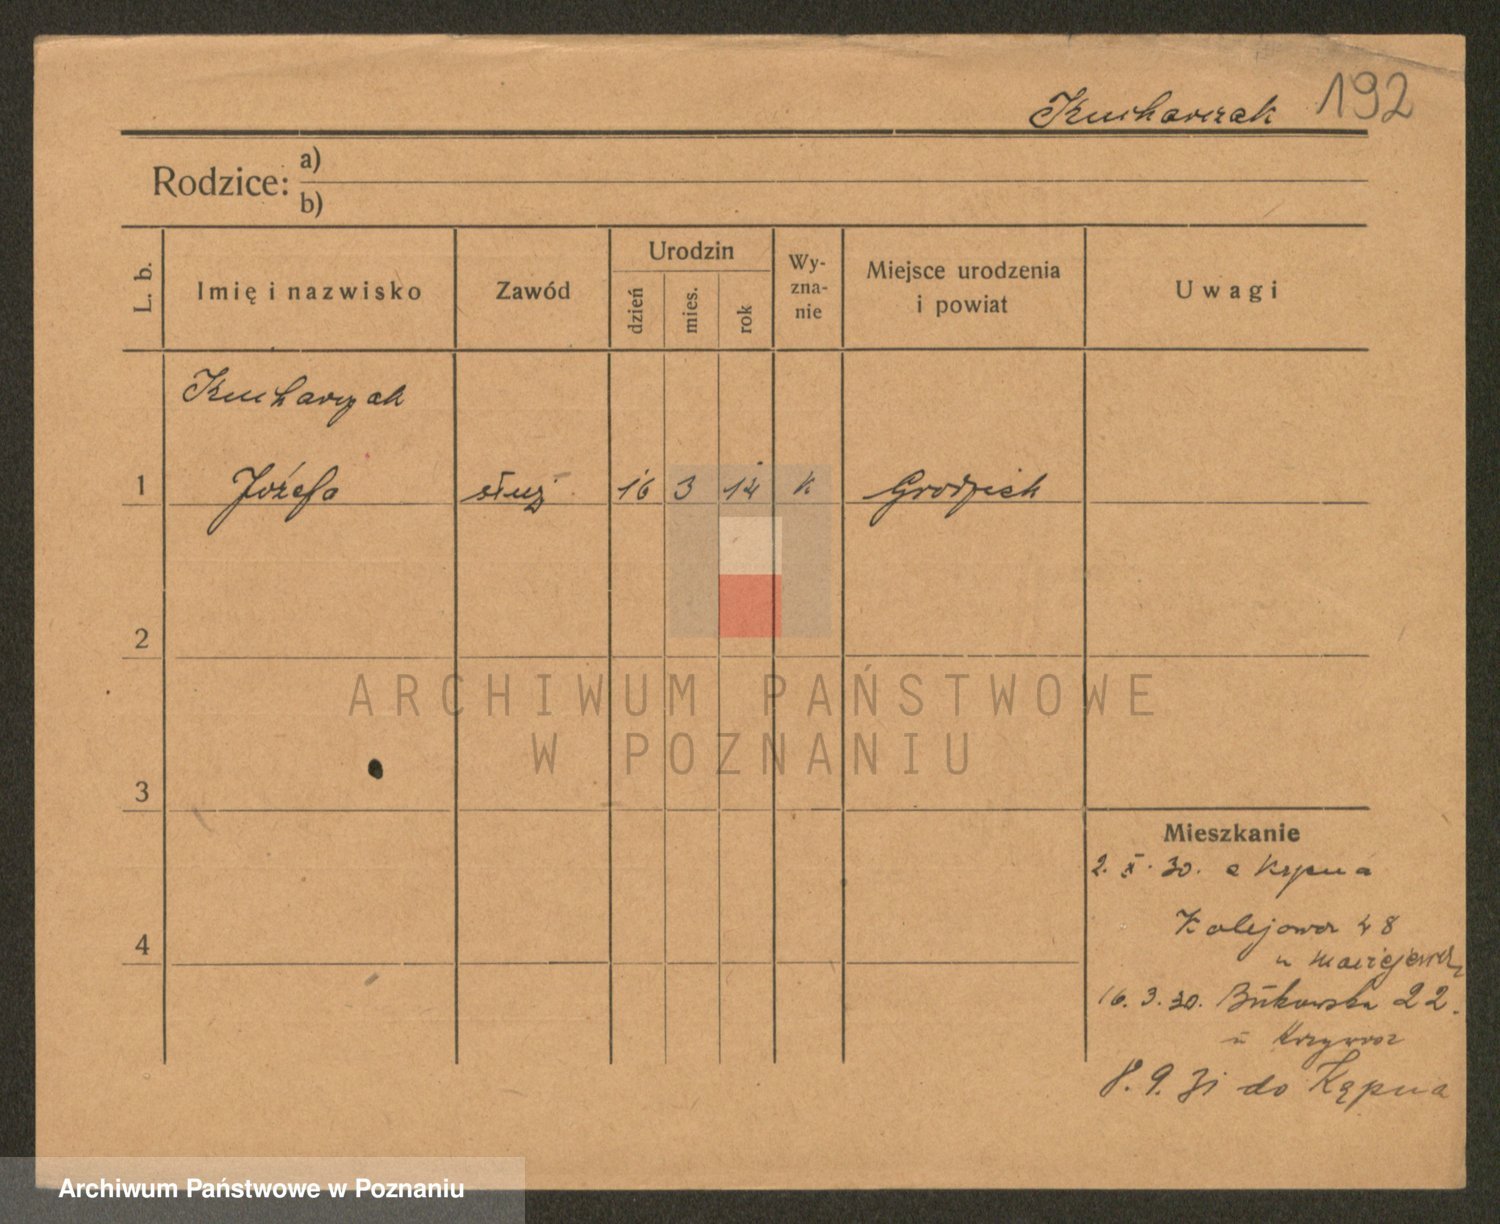 Kucharczak 192
Rodzice:
a)
b)
L. b.
Imię i nazwisko
Zawód
Urodzin
dzień
mies.
rok
Wy-
zna-
nie
Miejsce urodzenia
i powiat
Uwagi
Kucharczak
1 Józefa służ 16 3 14 k Grodzisk
2
3
4
ARCHIWUM PAŃSTWOWE
W POZNANIU
Mieszkanie
2. X. 30. z
Kolejowa 48
u
16. 3. 30. Bukowska 22.
u
8. 9. 31 do Kąpna
Archiwum Państwowe w Poznaniu